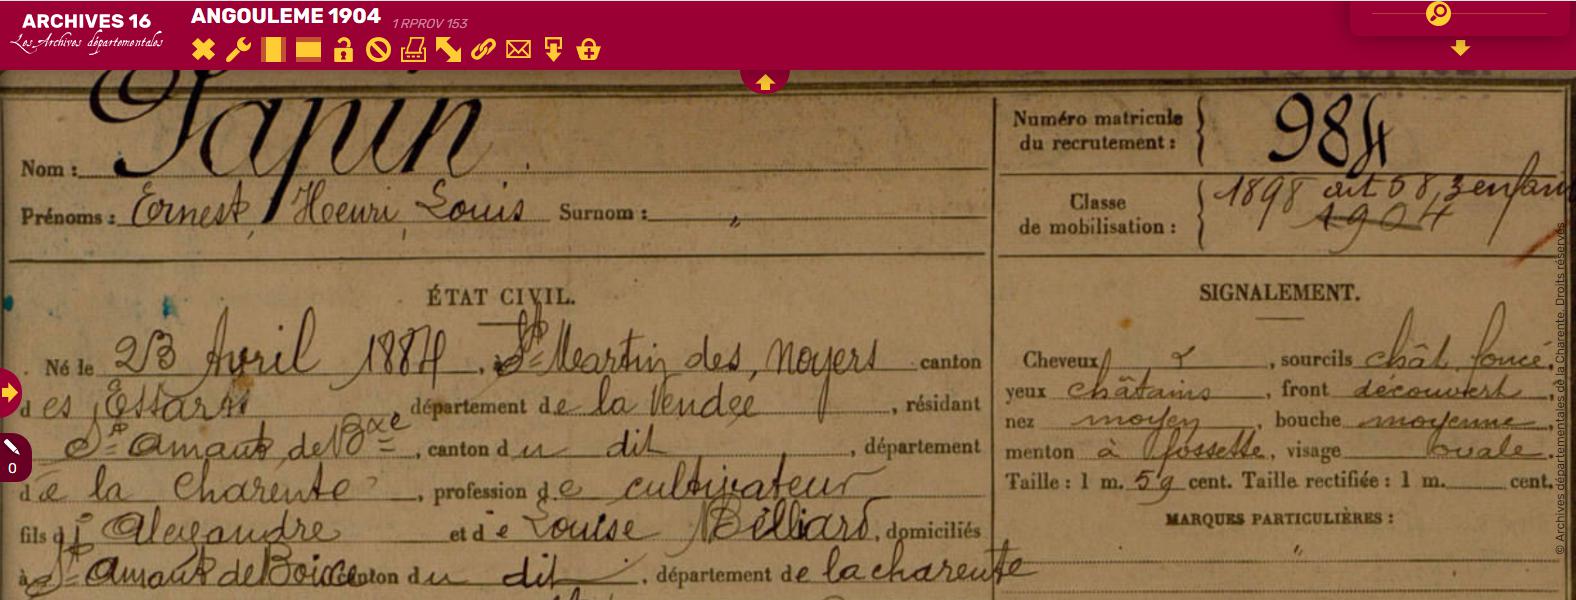 ARCHIVES 16
Les Archives départementales
ANGOULEME 1904 1 RPROV 153
0
Nom : Papin
Prénoms : Ernest, Henri, Louis Surnom : "
Numéro matricule
du recrutement : 984
Classe
de mobilisation : 1898 art 58, 3 enfants
1904
ÉTAT CIVIL.
Né le 23 Avril 1884, à St Martin des Noyers canton
des Essarts département de la Vendée, résidant
St Amant de Bxe, canton du dit, département
de la Charente, profession de cultivateur
fils d' Alexandre et de Louise Belliard, domiciliés
à St Amant de Boixe canton du dit, département de la charente
SIGNALEMENT.
Cheveux, sourcils chât foncé,
yeux châtains, front découvert,
nez moyen, bouche moyenne,
menton à fossette, visage ovale.
Taille : 1 m. 59 cent. Taille rectifiée : 1 m. cent.
MARQUES PARTICULIÈRES :
"
© Archives départementales de la Charente. Droits réservés